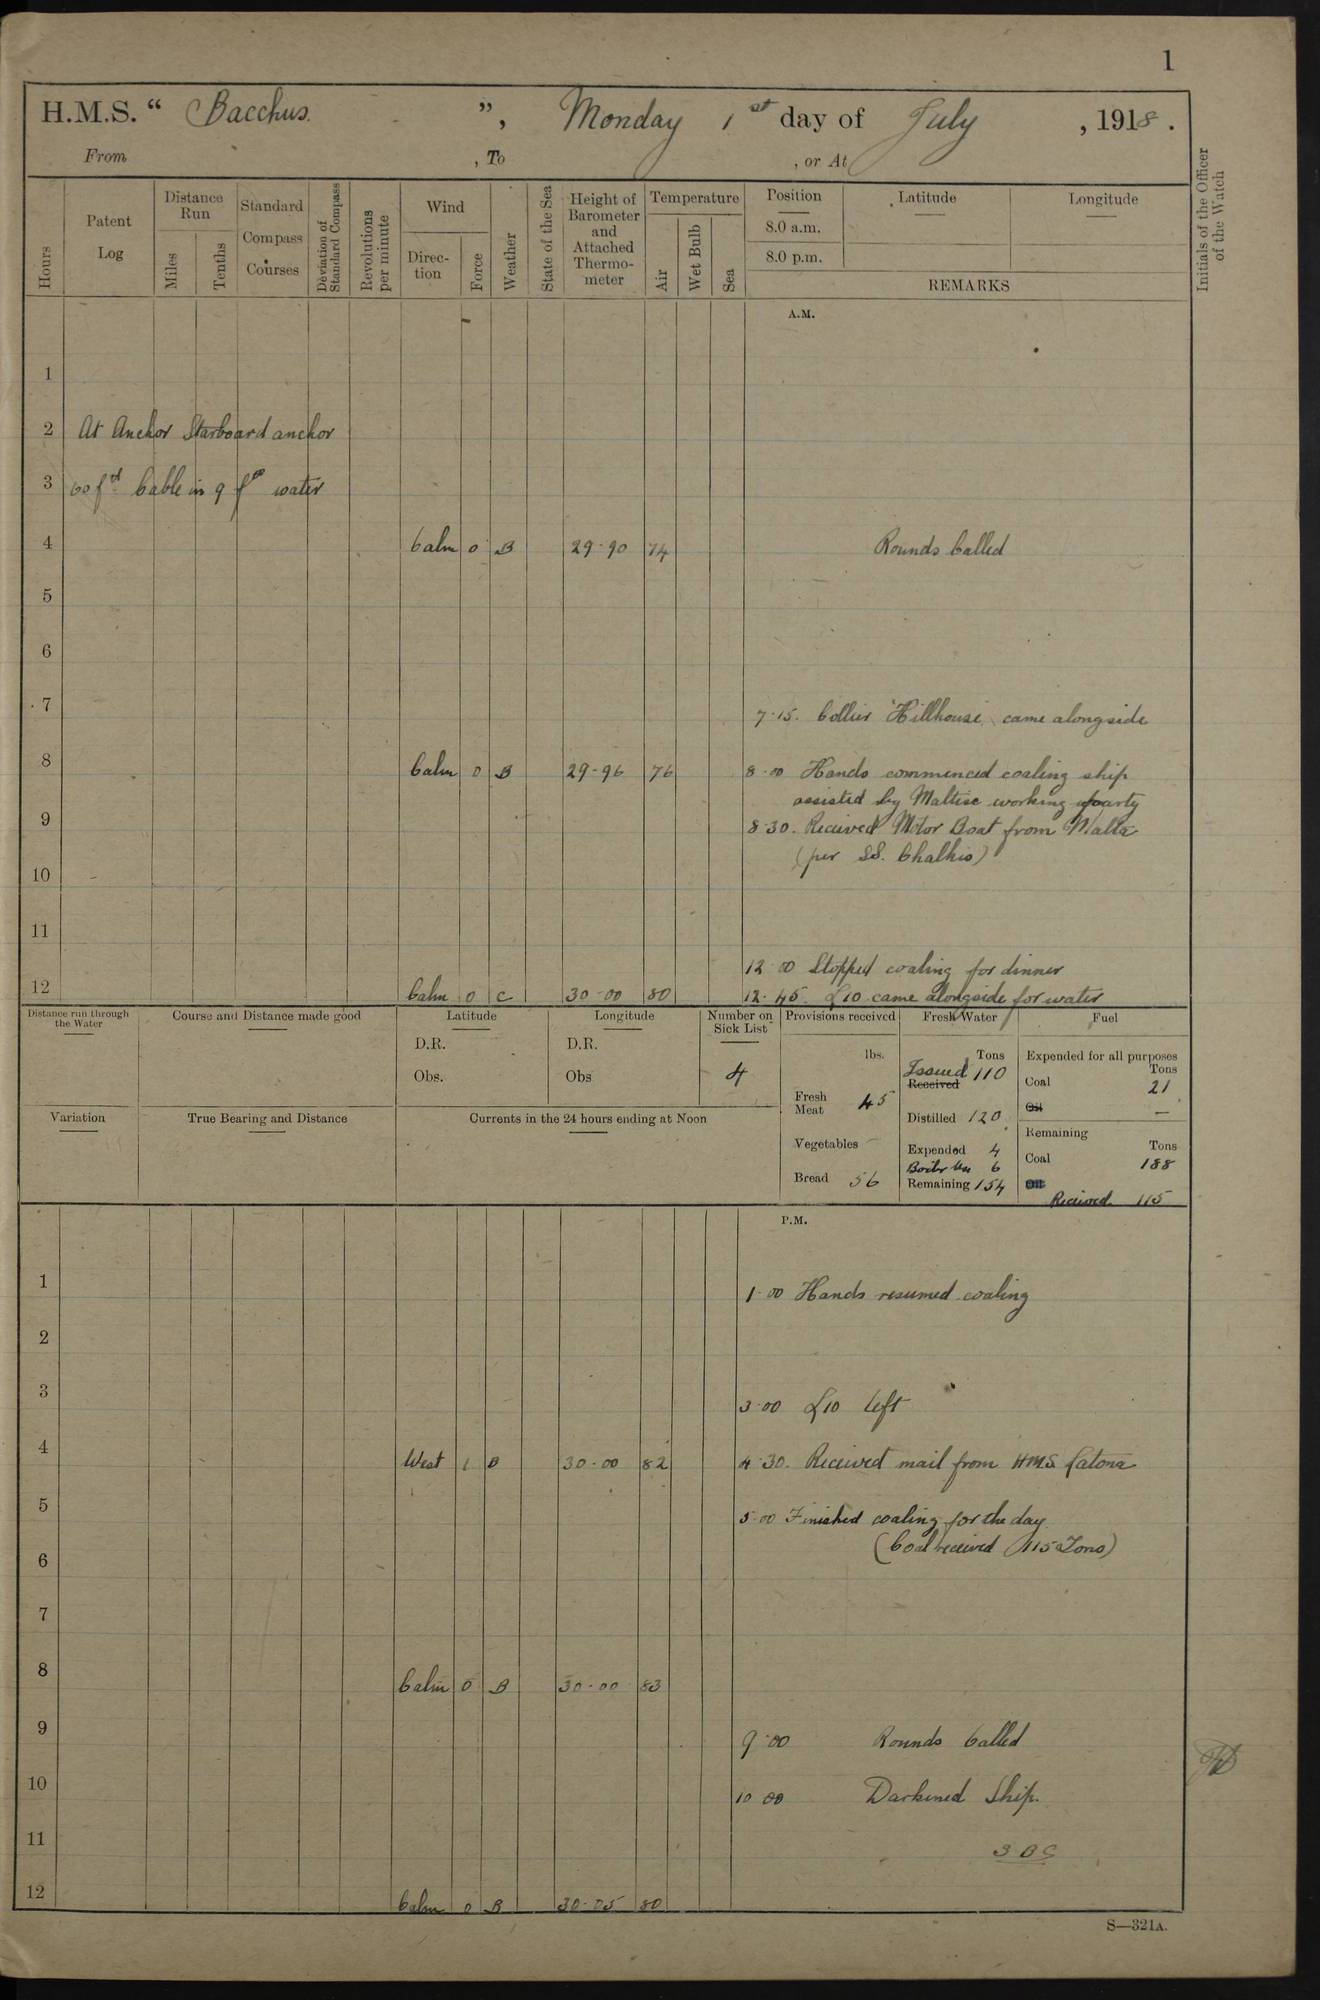 1
H.M.S. “ Bacchus. ”, Monday 1st day of July , 1918 .
From , To , or At
Hours
Patent Log
Distance Run
Miles
Tenths
Standard Compass Courses
Deviation of Standard Compass
Revolutions per minute
Wind
Direc-tion
Force
Weather
State of the Sea
Height of Barometer and Attached Thermo-meter
Temperature
Air
Wet Bulb
Sea
Position
8.0 a.m.
8.0 p.m.
Latitude
Longitude
REMARKS
Initials of the Officer of the Watch
A.M.
1
2 At Anchor Starboard anchor
3 60 fd Cable in 9 fm water
4 Calm 0 B 29-90 74 Rounds Called
5
6
7 7-15. Collier "Hillhouse" came alongside
8 Calm 0 B 29-96 76 8-00 Hands commenced coaling ship
assisted by Maltese working party
9 8-30. Received Motor Boat from Malta
(per SS. Chalkis)
10
11
12-00 Stopped coaling for dinner
12 Calm 0 C 30-00 80 12-45. L10 came alongside for water
Distance run through the Water
Course and Distance made good
Latitude
D.R.
Obs.
Longitude
D.R.
Obs
Number on Sick List
4
Provisions received
lbs.
Fresh Meat 45
Vegetables –
Bread 56
Fresh Water
Tons
Issued 110
Received
Distilled 120
Expended 4
Boiler Use 6
Remaining 154
Fuel
Expended for all purposes
Tons
Coal 21
Oil —
Remaining
Tons
Coal 188
Oil
Received 115
Variation
True Bearing and Distance
Currents in the 24 hours ending at Noon
P.M.
1 1-00 Hands resumed coaling
2
3 3-00 L10 left
4 West 1 B 30-00 82 4-30. Received mail from HMS Latona
5 5-00 Finished coaling for the day
(Coal received 115 Tons)
6
7
8 Calm 0 B 30-00 83
9 9-00 Rounds Called
10 10-00 Darkened Ship.
11
12 Calm 0 B 30-05 80
S—321A.